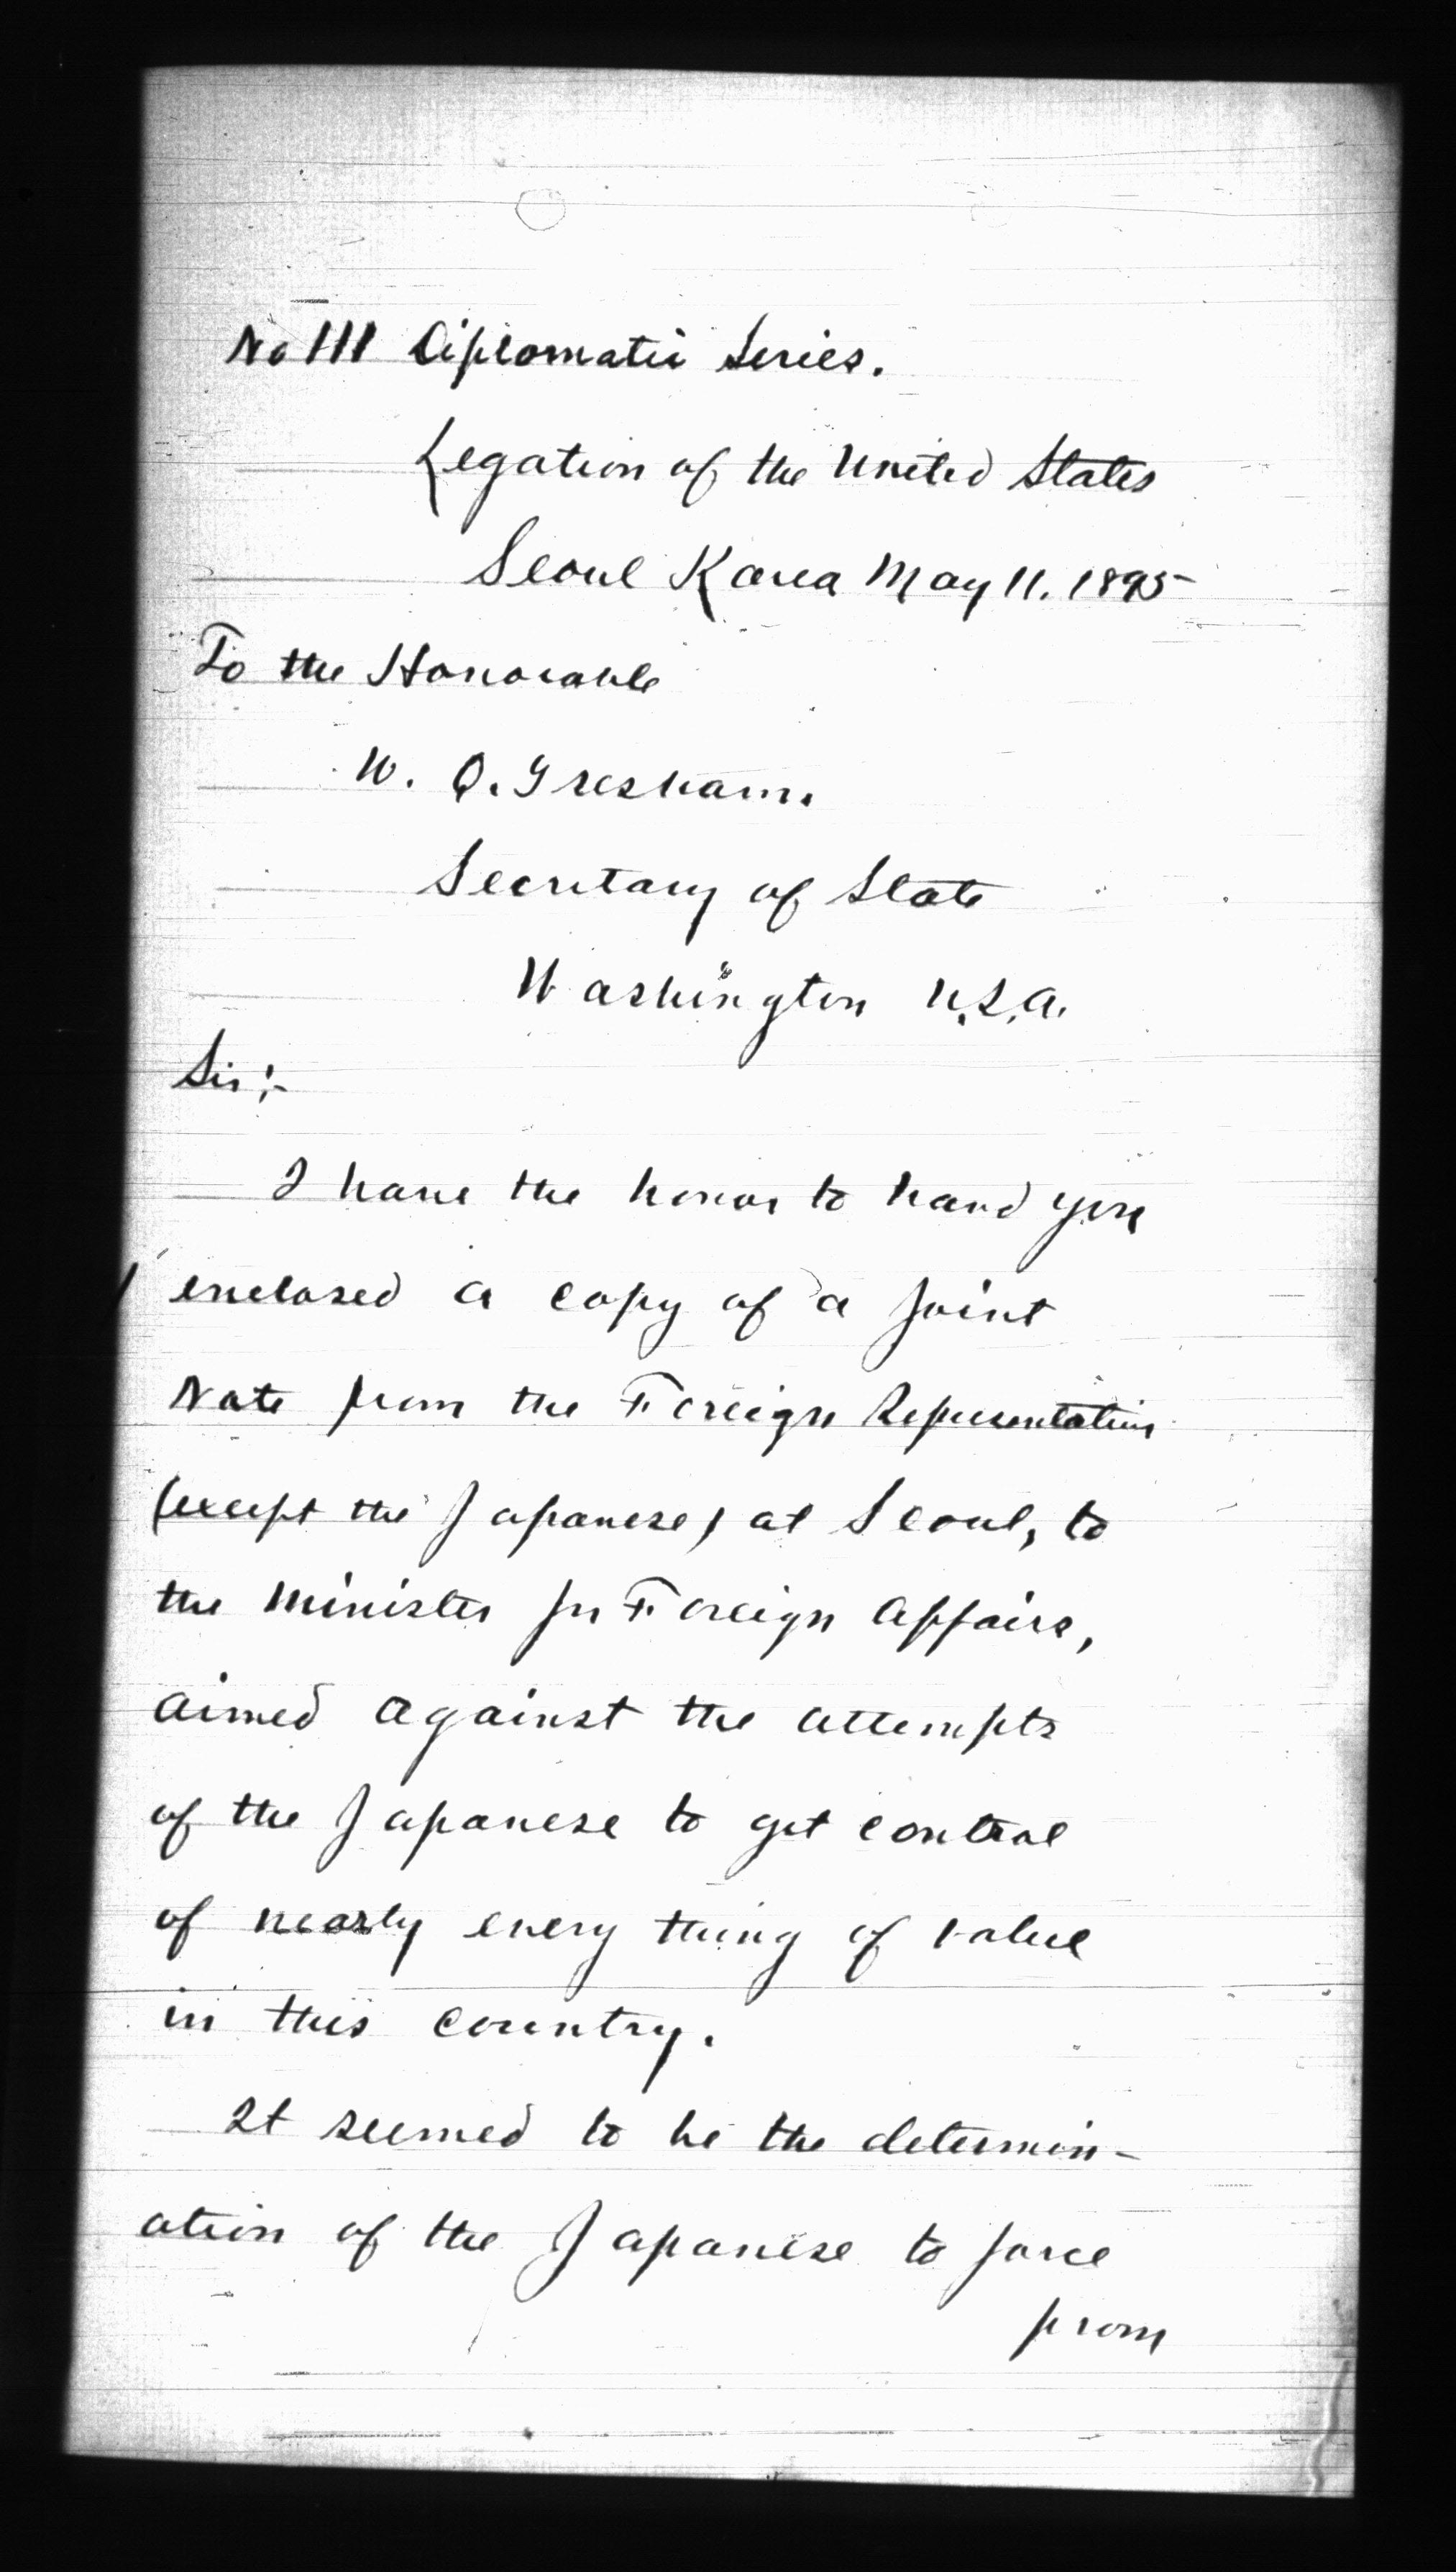 No 111 Diplomatic Series.
Legation of the United States
Seoul Korea May 11. 1895
To the Honorable
W. Q. Gresham.
Secretary of State
Washington U.S.A.
Sir:-
I have the honor to hand you
1 enclosed a copy of a Joint
Note from the Foreign Representatives
(except the Japanese) at Seoul, to
the Minister for Foreign Affairs,
aimed against the attempts
of the Japanese to get control
of nearly every thing of value
in this country.
It seemed to be the determin-
ation of the Japanese to force
from